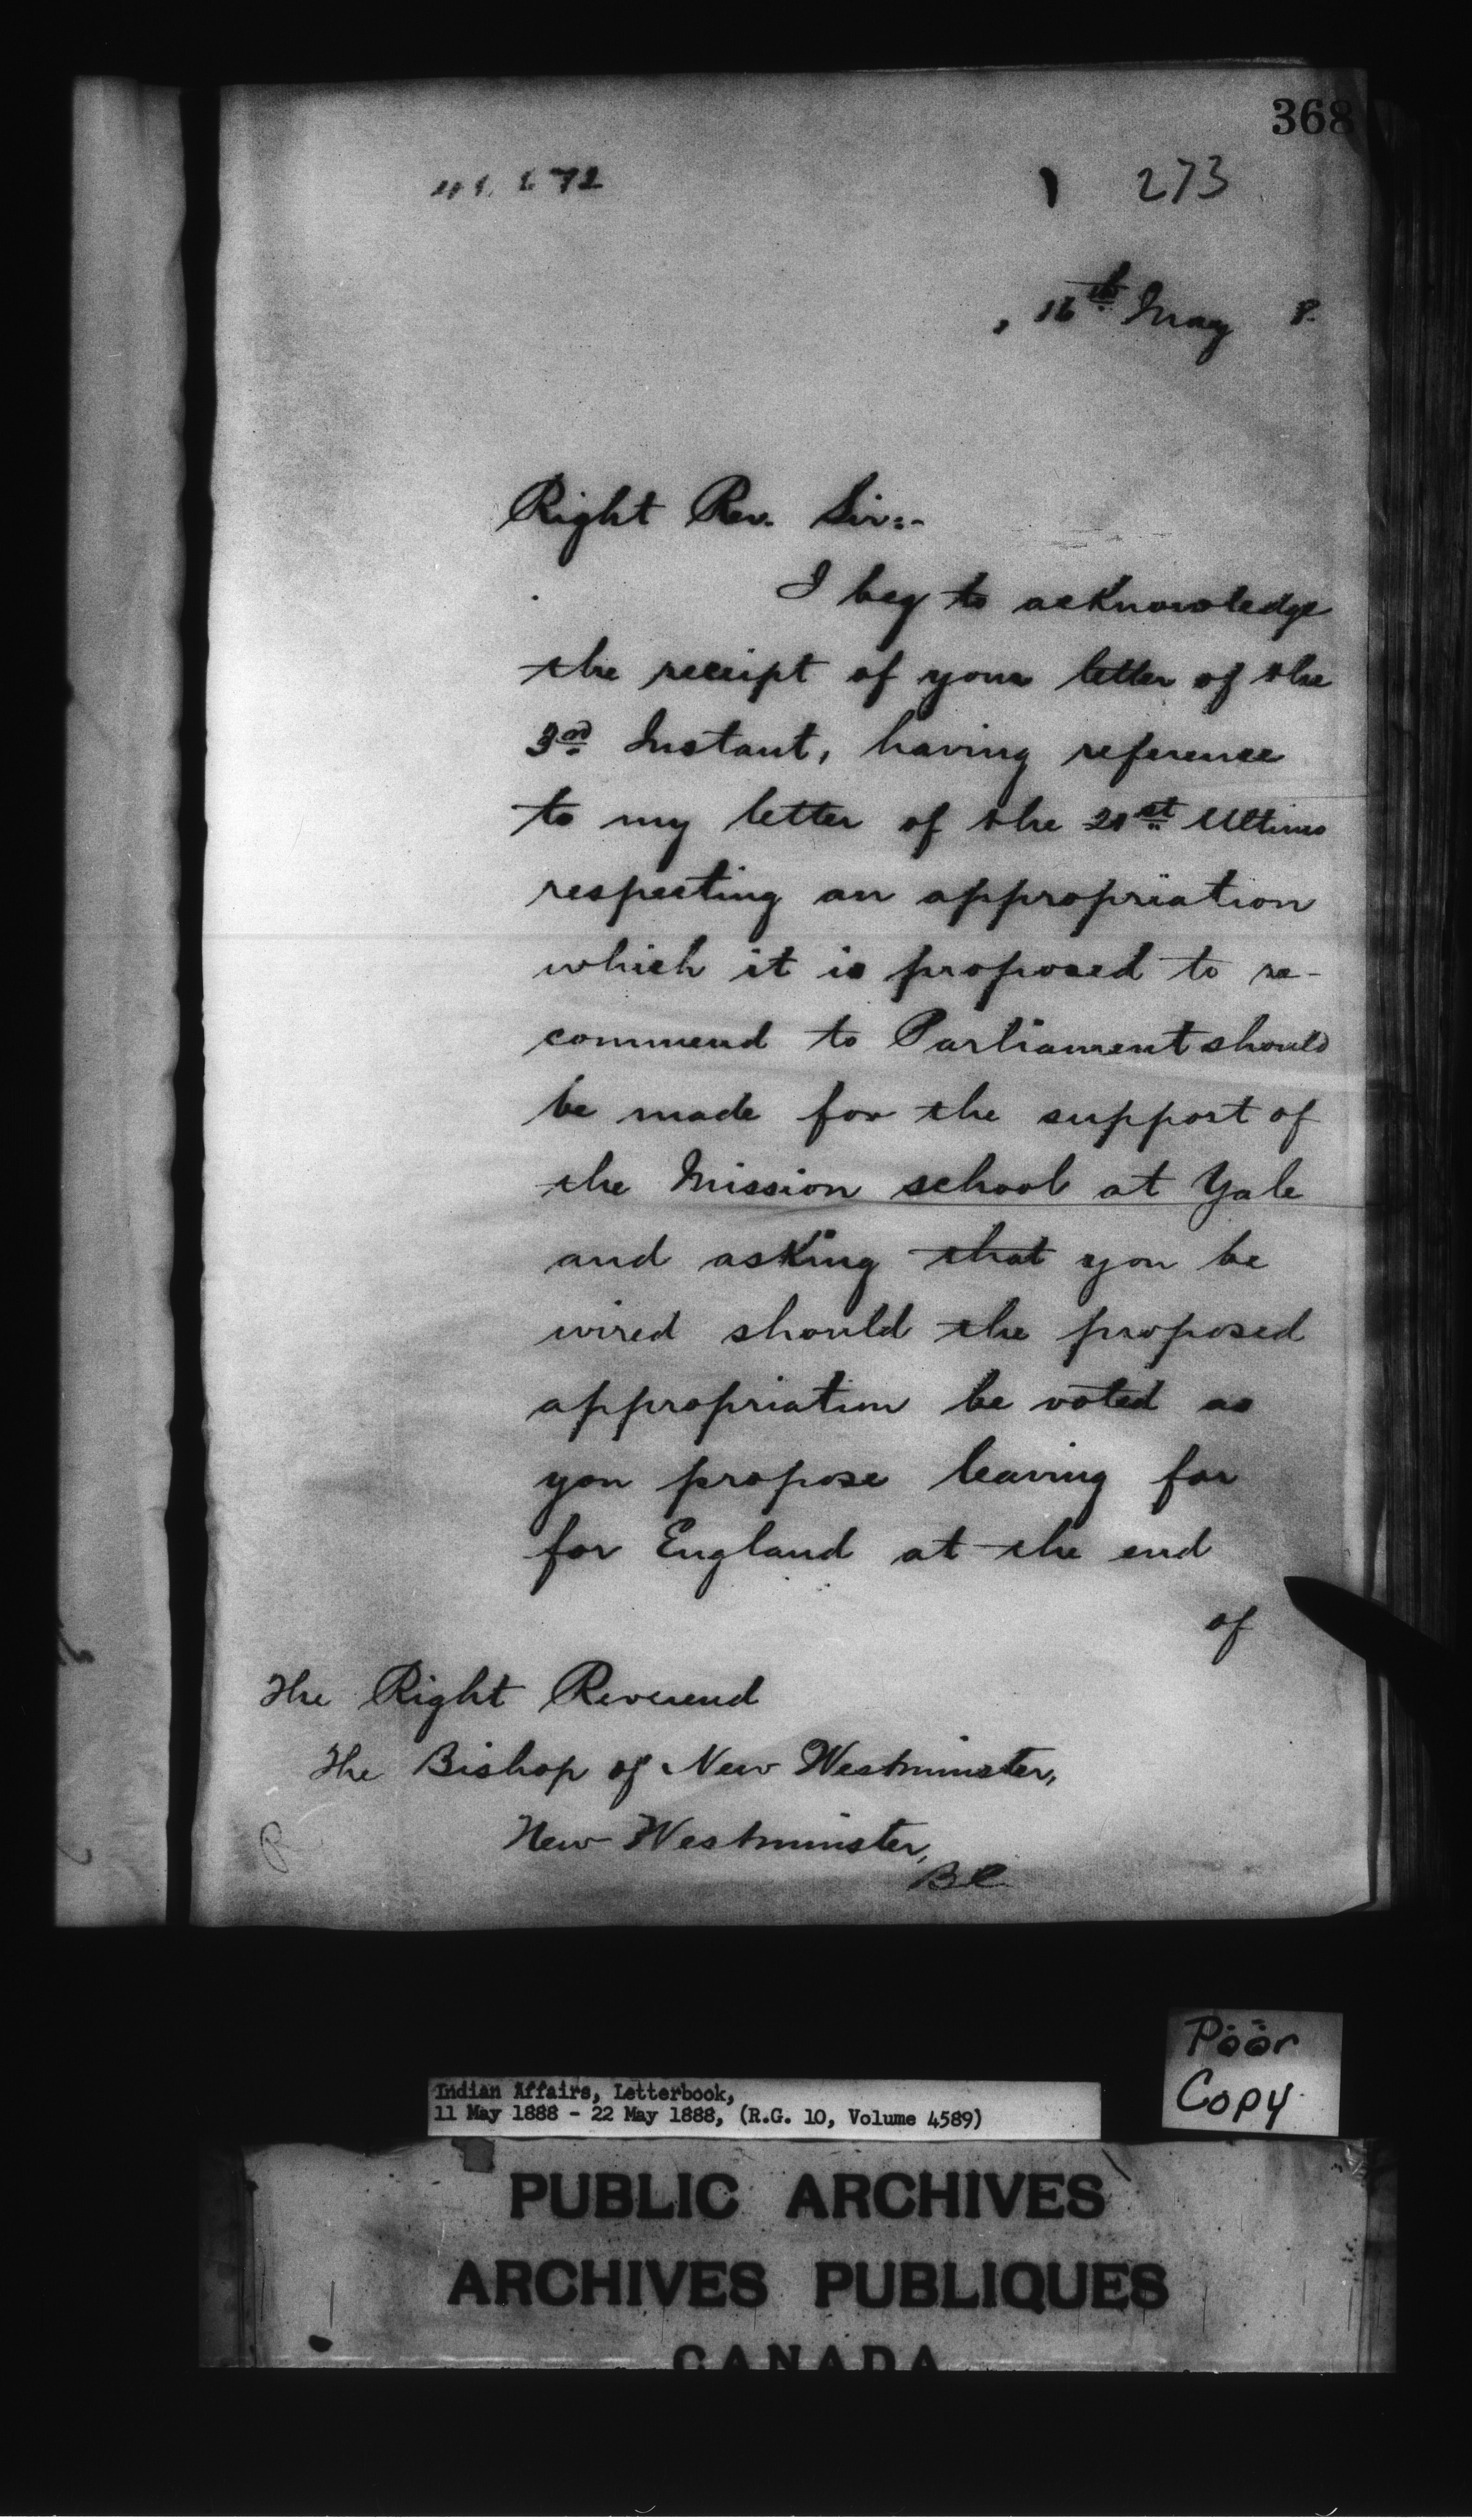 368
273
, 16th May 8.
Right Rev. Sir:-
I beg to acknowledge
the receipt of your letter of the
3rd Instant, having reference
to my letter of the 21st Ultimo
respecting an appropriation
which it is proposed to re-
commend to Parliament should
be made for the support of
the Mission school at Yale
and asking that you be
wired should the proposed
appropriation be voted as
you propose leaving for
for England at the end
of
The Right Reverend
The Bishop of New Westminster,
New Westminster,
BC
Poor
Copy
Indian Affairs, Letterbook,
11 May 1888 - 22 May 1888, (R.G. 10, Volume 4589)
PUBLIC ARCHIVES
ARCHIVES PUBLIQUES
CANADA